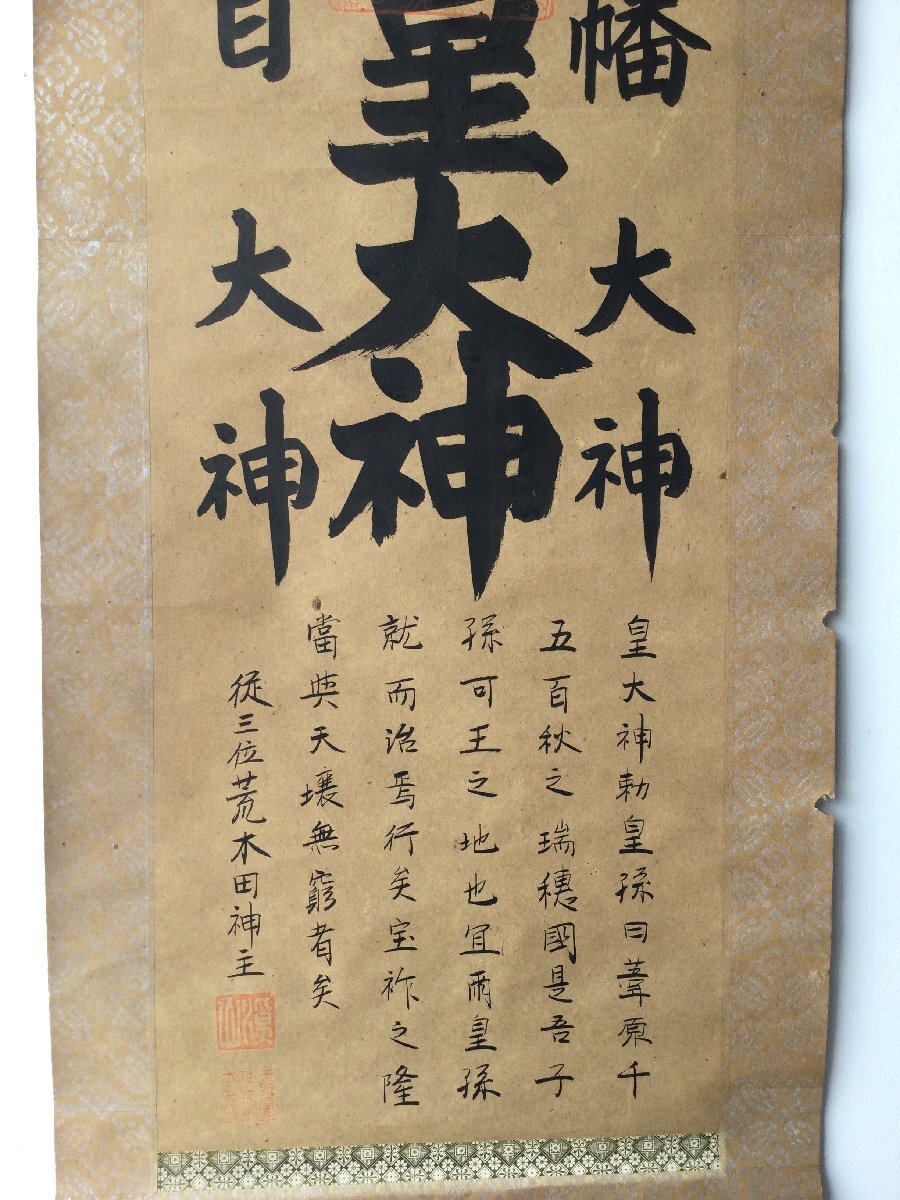 幡大神
皇大神
日大神
皇大神勅皇孫曰葦原千
五百秋之瑞穂國是吾子
孫可王之地也宜爾皇孫
就而治焉行矣宝祚之隆
當與天壤無窮者矣
從三位荒木田神主